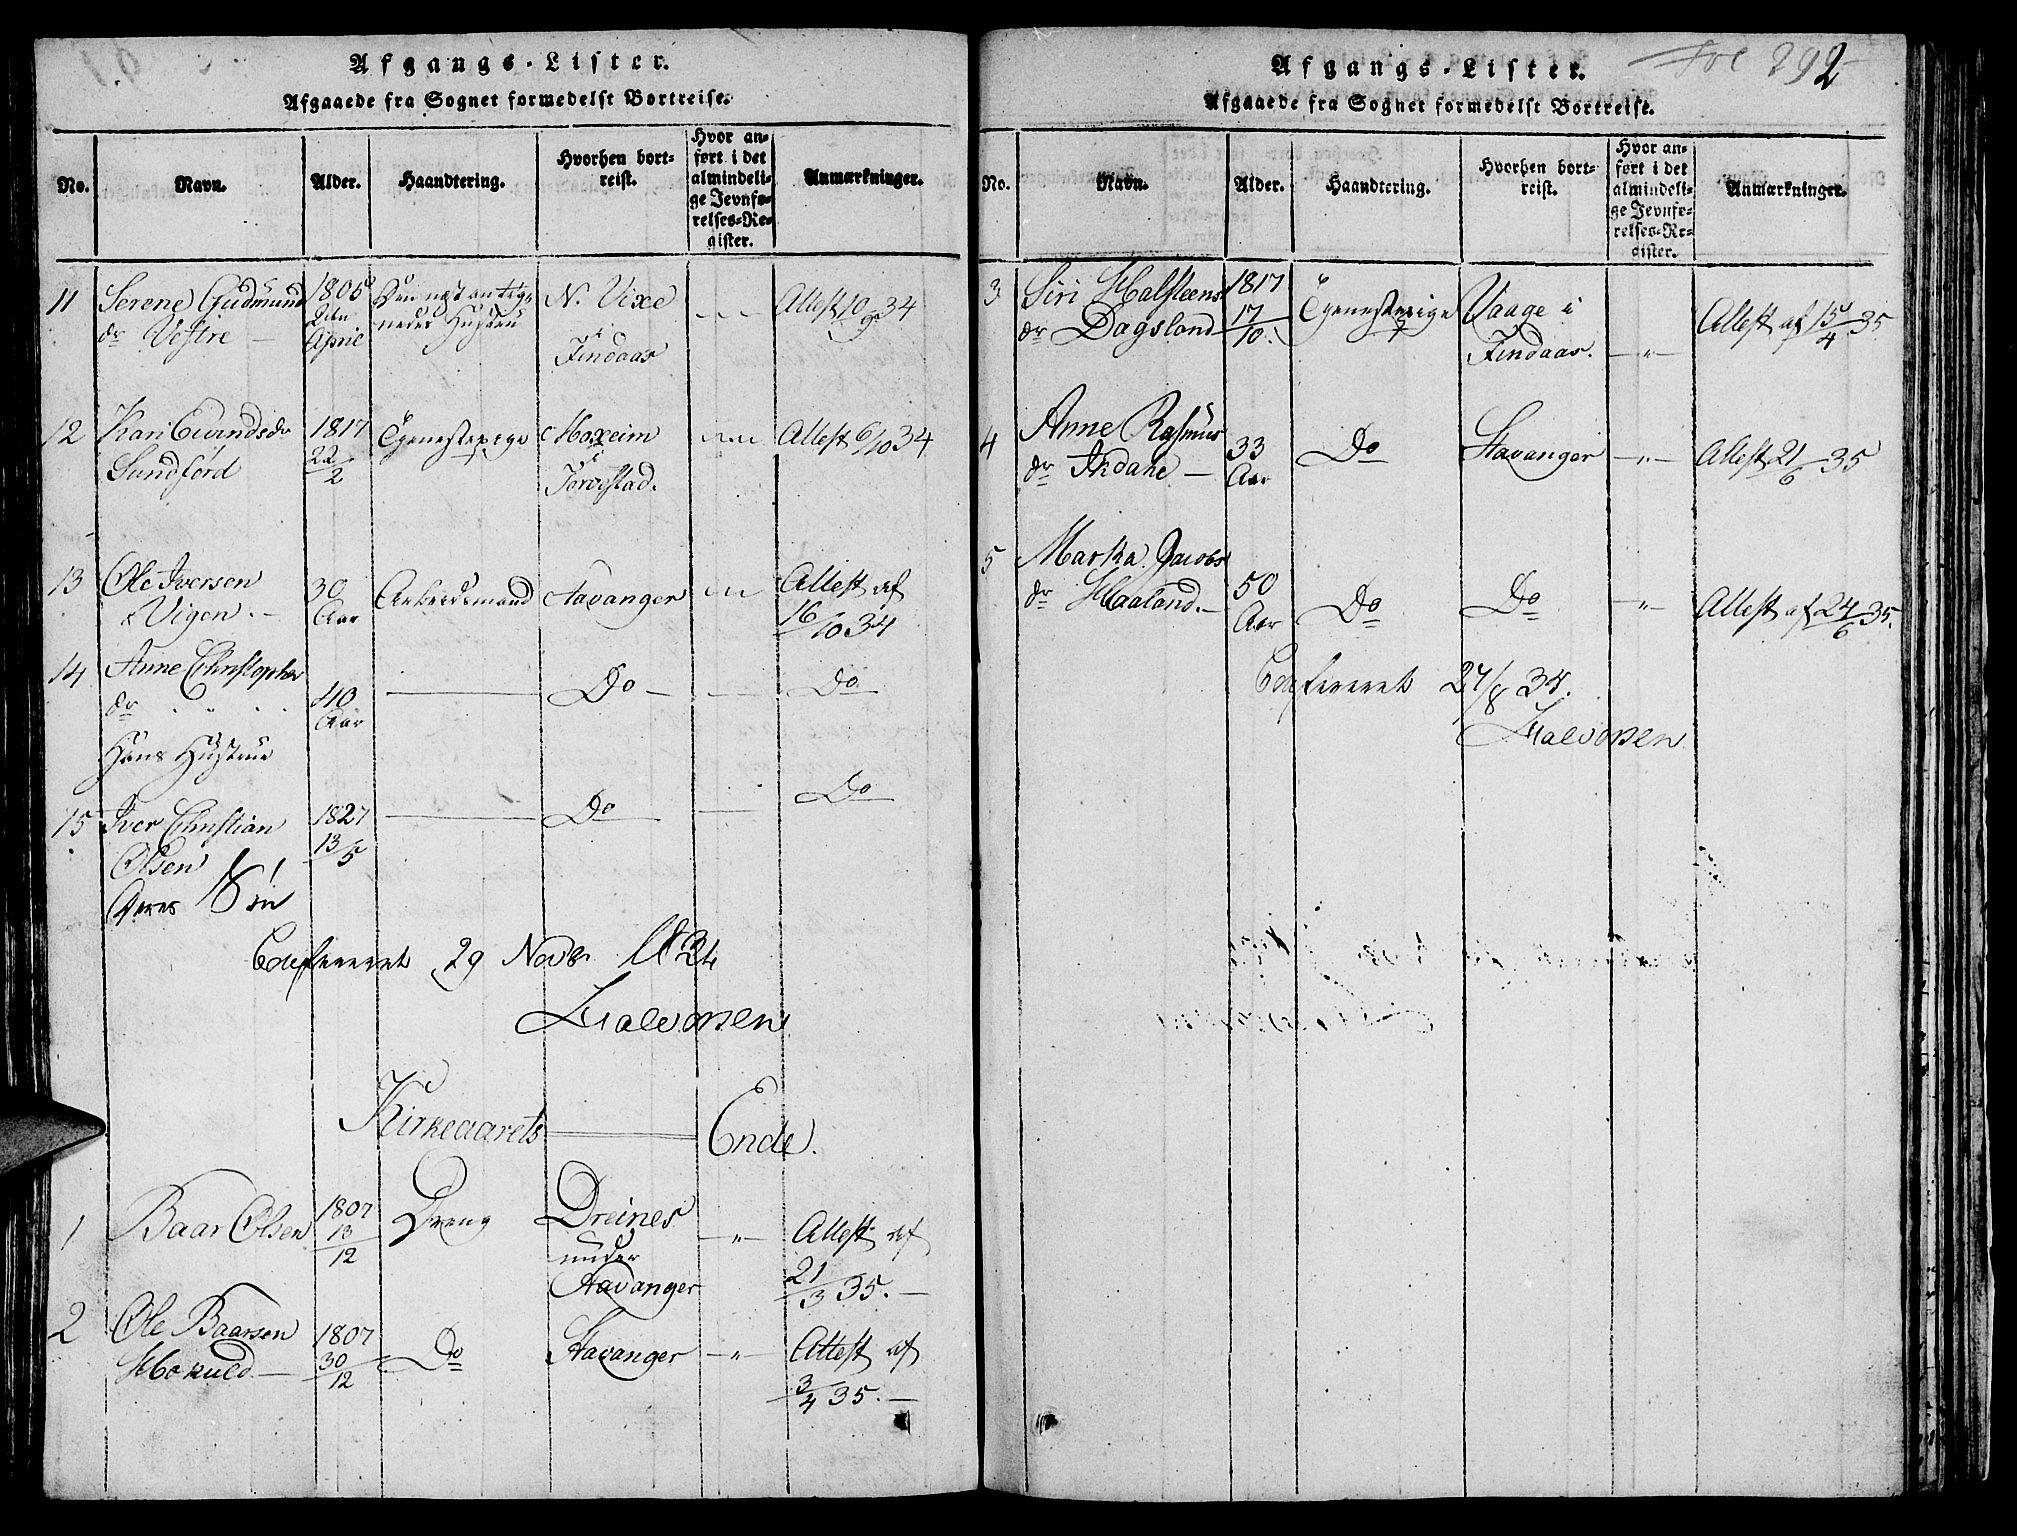 Afgangs-Lister.
Afgaaede fra Sognet formedelst Bortreise.
No.
Navn.
Alder.
Haandtering.
Hvorhen bort-
reist.
Hvor an-
ført i det
almindeli-
ge Jevnfø-
relses-Re-
gister.
Anmærkninger.
11
Serene Gudmunds
dr Vestre
1805
2den
April
Den næst
Hustru
N. Vixe
i
Findaas
Attest 10/9 34
12
Kari Eivindsdr
Sundførd
1817
22/2
Tjenestepige
i
Torvestad.
Attest 6/10 34
13
Ole Iversen
Vigen.
30
Aar
Arbeidsmand
Stavanger
Attest af
16/10 34
14
Anne Christophers
dr
Hans Hustrue
40
Aar
Do
Do
15
Iver Christian
Olsen
Deres Søn
1827
13/5
Do
Do
Confereret 29 Novbr 1834
Halvorsen
Kirkeaarets Ende.
1
Baar Olsen
1807
13/12
Dreng
Dreines
under
Stavanger
Attest af
21/3 35.
2
Ole Baarsen
1807
30/12
Do
Stavanger
Attest af
3/4 35.
Fol 292
Afgangs-Lister.
Afgaaede fra Sognet formedelst Bortreise.
No.
Navn.
Alder.
Haandtering.
Hvorhen bort-
reist.
Hvor an-
ført i det
almindeli-
ge Jevnfø-
relses-Re-
gister.
Anmærkninger.
3
Siri Halsteens
dr Dagsland
1817
17/10.
Tjenestepige
Vaage i
Findaas.
Attest af 15/4 35
4
Anne Rasmus
dr
33
Aar
Do
Stavanger
Attest 21/6 35
5
Martha Jacobs
dr Haaland.
50
Aar
Do
Do
Attest af 24/6 35.
Confereret 27/8 35.
Halvorsen